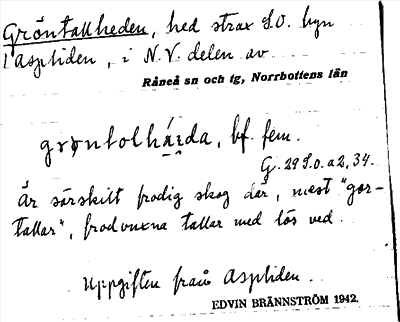 Gröntallheden, hed strax S.O. byn
i Aspliden, i N.V. delen av
Råneå sn och tg, Norrbottens län
grøntolhä́i̯da, bf. fem.
G. 29 S.o. a2, 34.
Är särskilt frodig skog där, mest "gor-
tallar", frodvuxna tallar med lös ved.
Uppgiften från Aspliden.
EDVIN BRÄNNSTRÖM 1942.